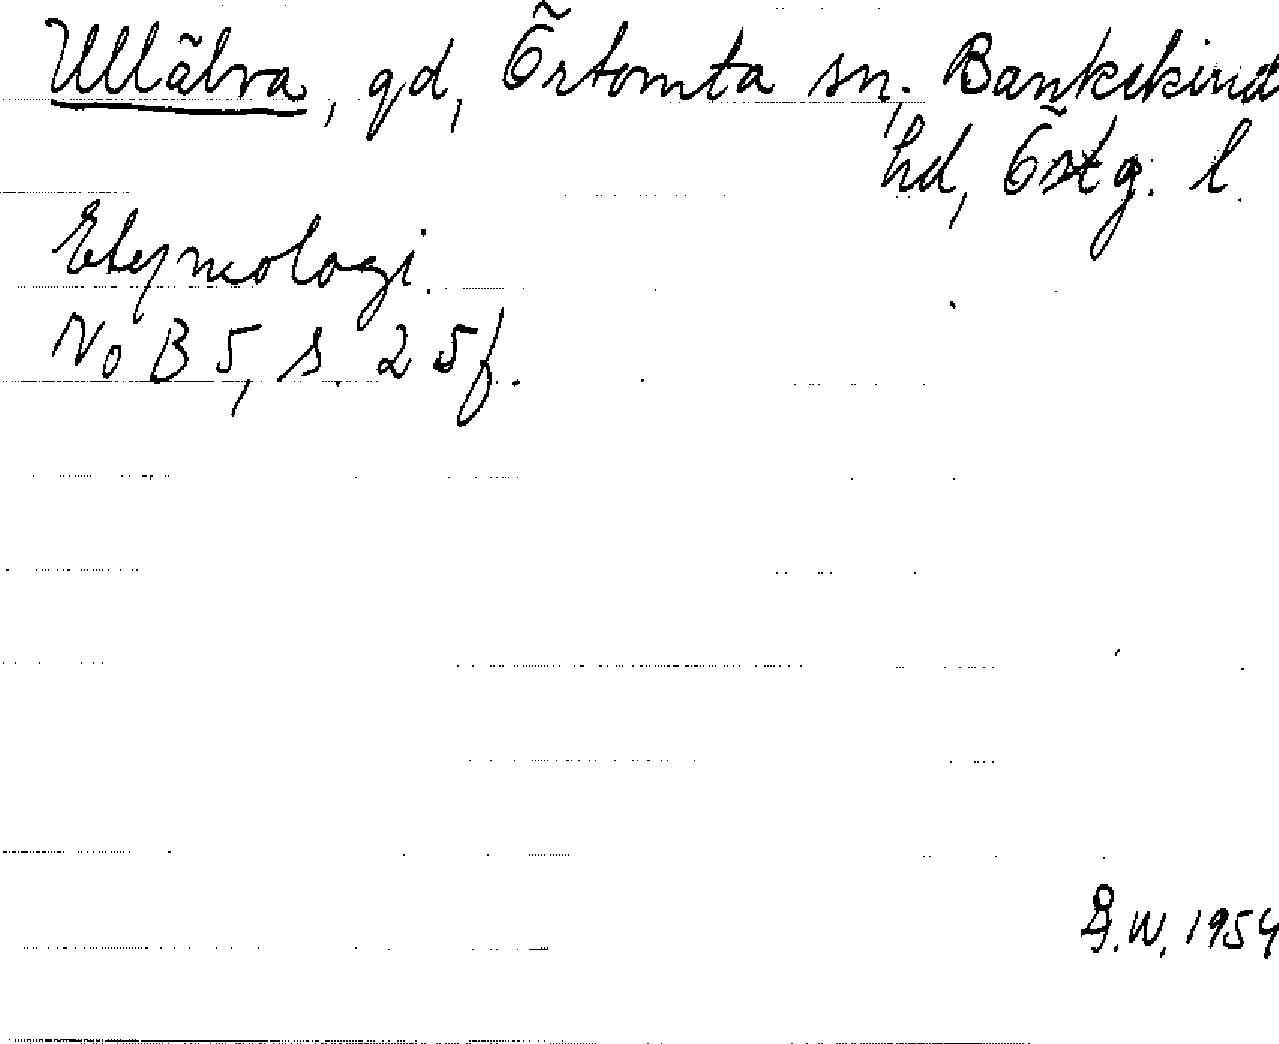 Ullälva, gd, Örtomta sn, Bankekind
hd, Östg. l.
Etymologi.
NoB 5, s. 25f.
G.W. 1954